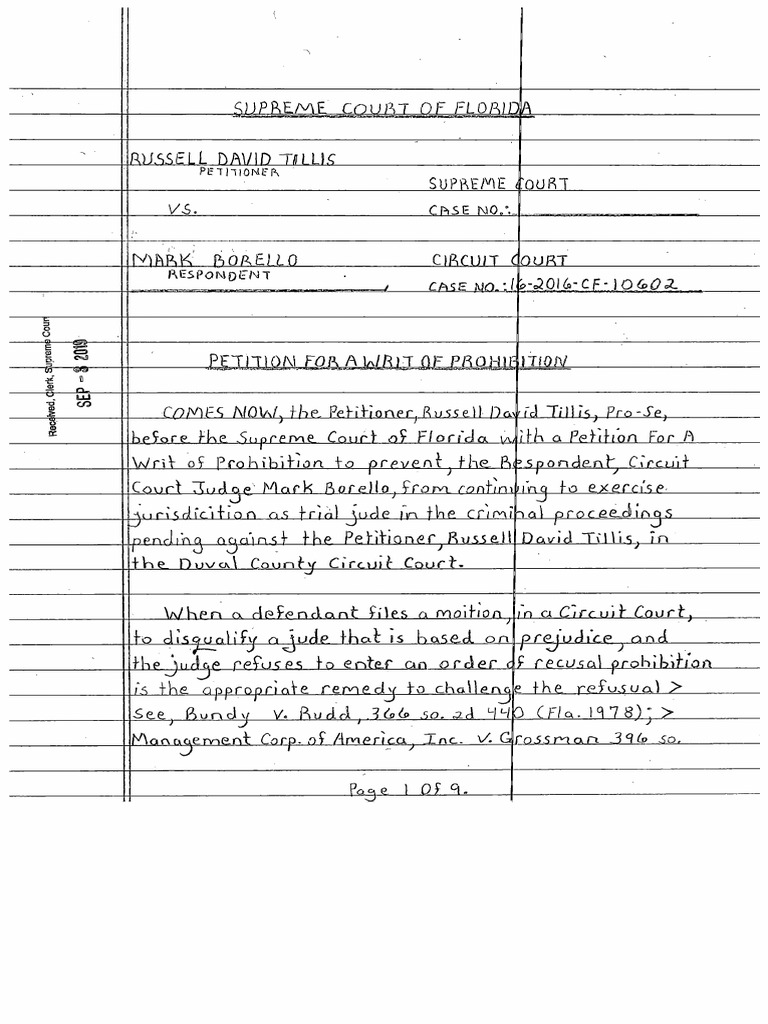 SUPREME COURT OF FLORIDA
RUSSELL DAVID TILLIS
PETITIONER
SUPREME COURT
VS.
CASE NO.:
MARK BORELLO
CIRCUIT COURT
RESPONDENT
CASE NO.:16-2016-CF-10602
Received, Clerk, Supreme Court
SEP - 3 2019
PETITION FOR A WRIT OF PROHIBITION
COMES NOW, the Petitioner, Russell David Tillis, Pro-Se,
before the Supreme Court of Florida with a Petition For A
Writ of Prohibition to prevent, the Respondent, Circuit
Court Judge Mark Borello, from continuing to exercise
jurisdicition as trial jude in the criminal proceedings
pending against the Petitioner, Russell David Tillis, in
the Duval County Circuit Court.
When a defendant files a moition, in a Circuit Court,
to disqualify a jude that is based on prejudice, and
the judge refuses to enter an order of recusal prohibition
is the appropriate remedy to challenge the refusual >
See, Bundy v. Rudd, 366 so. 2d 440 (Fla. 1978); >
Management Corp. of America, Inc. v. Grossman 396 so.
Page 1 Of 9.